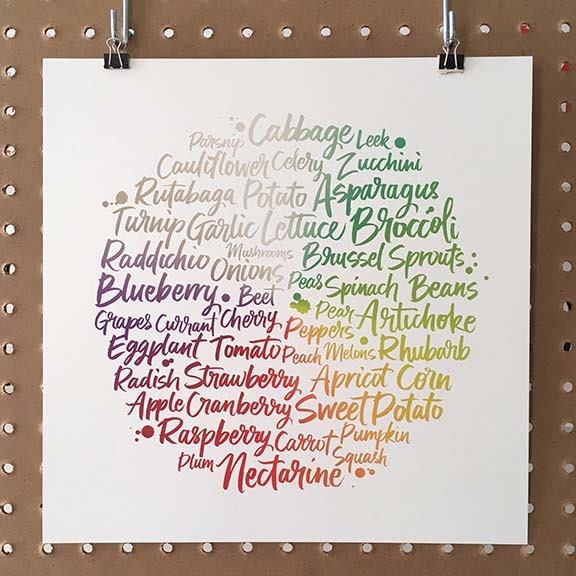 Parsnip Cabbage Leek
Cauliflower Celery Zucchini
Rutabaga Potato Asparagus
Turnip Garlic Lettuce Broccoli
Raddichio Mushrooms Brussel Sprouts
Onions Peas Spinach Beans
Blueberry Beet Pear Artichoke
Grapes Currant Cherry Peppers
Eggplant Tomato Peach Melons Rhubarb
Radish Strawberry Apricot Corn
Apple Cranberry Sweet Potato
Raspberry Carrot Pumpkin
Plum Nectarine Squash